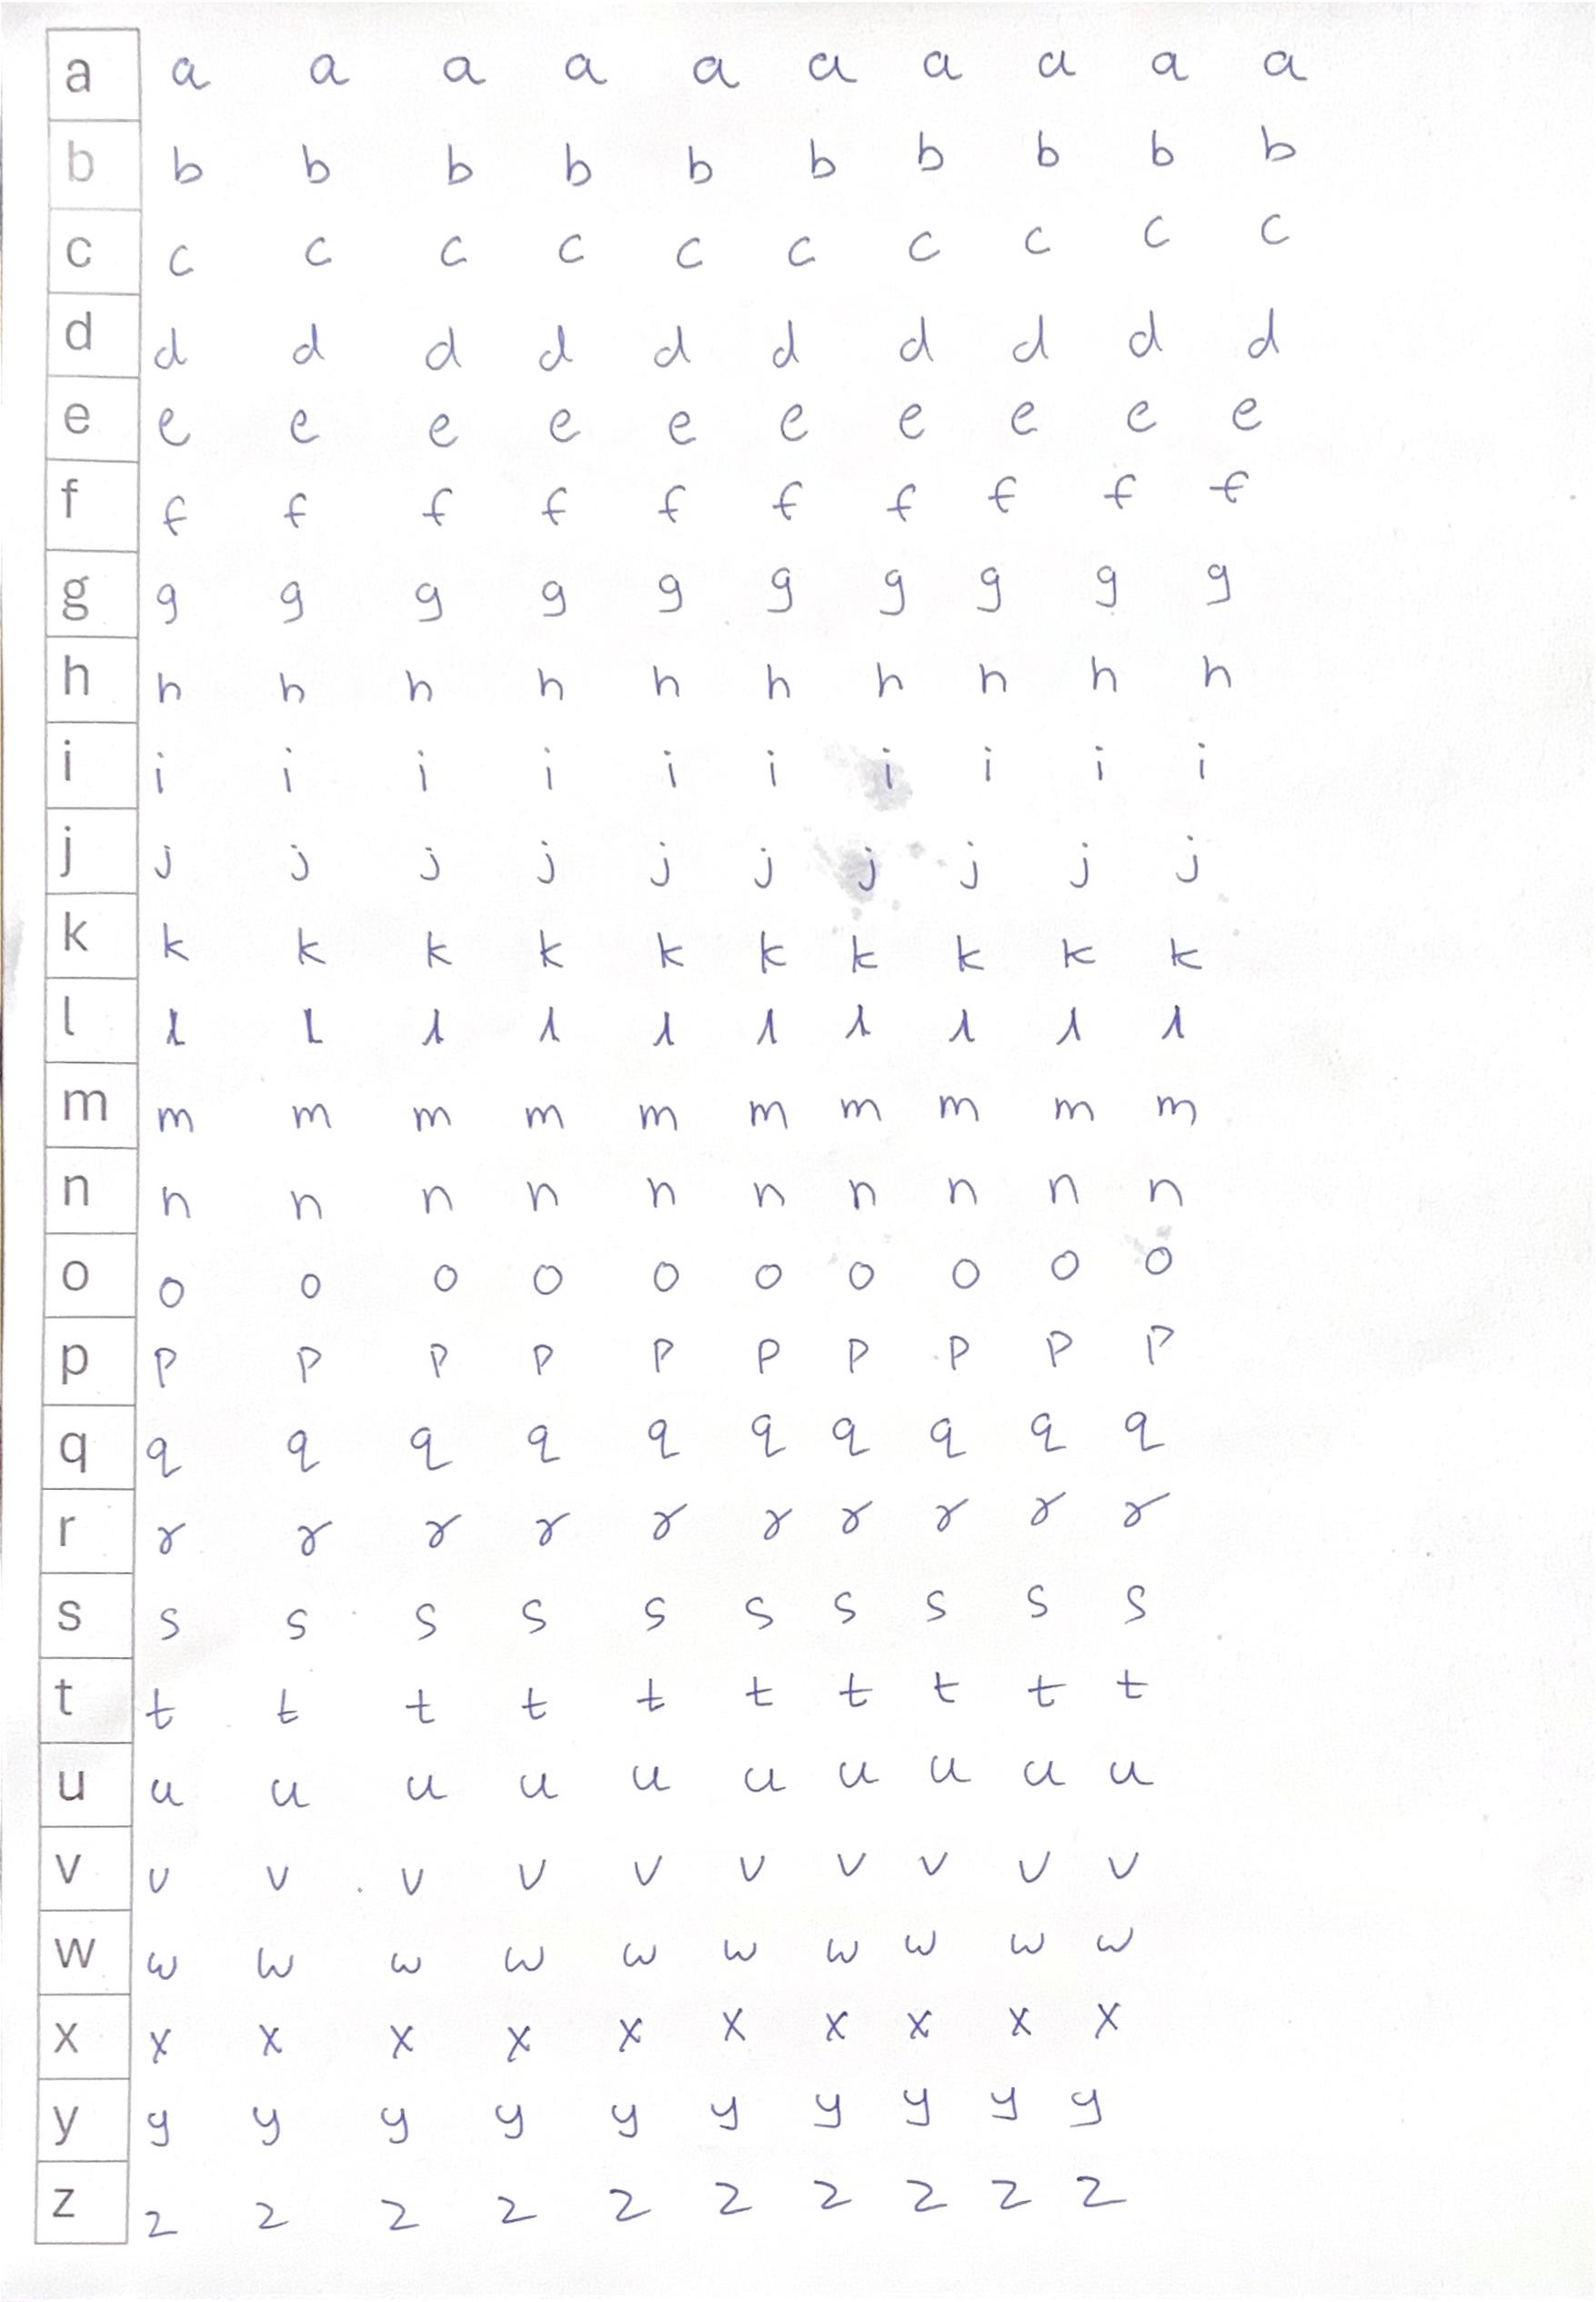 a a a a a a a a a a a
b b b b b b b b b b b
c c c c c c c c c c c
d d d d d d d d d d d
e e e e e e e e e e e
f f f f f f f f f f f
g g g g g g g g g g g
h h h h h h h h h h h
i i i i i i i i i i i
j j j j j j j j j j j
k k k k k k k k k k k
l l l l l l l l l l l
m m m m m m m m m m m
n n n n n n n n n n n
o o o o o o o o o o o
p p p p p p p p p p p
q q q q q q q q q q q
r r r r r r r r r r r
s s s s s s s s s s s
t t t t t t t t t t t
u u u u u u u u u u u
v v v v v v v v v v v
w w w w w w w w w w w
x x x x x x x x x x x
y y y y y y y y y y y
z z z z z z z z z z z